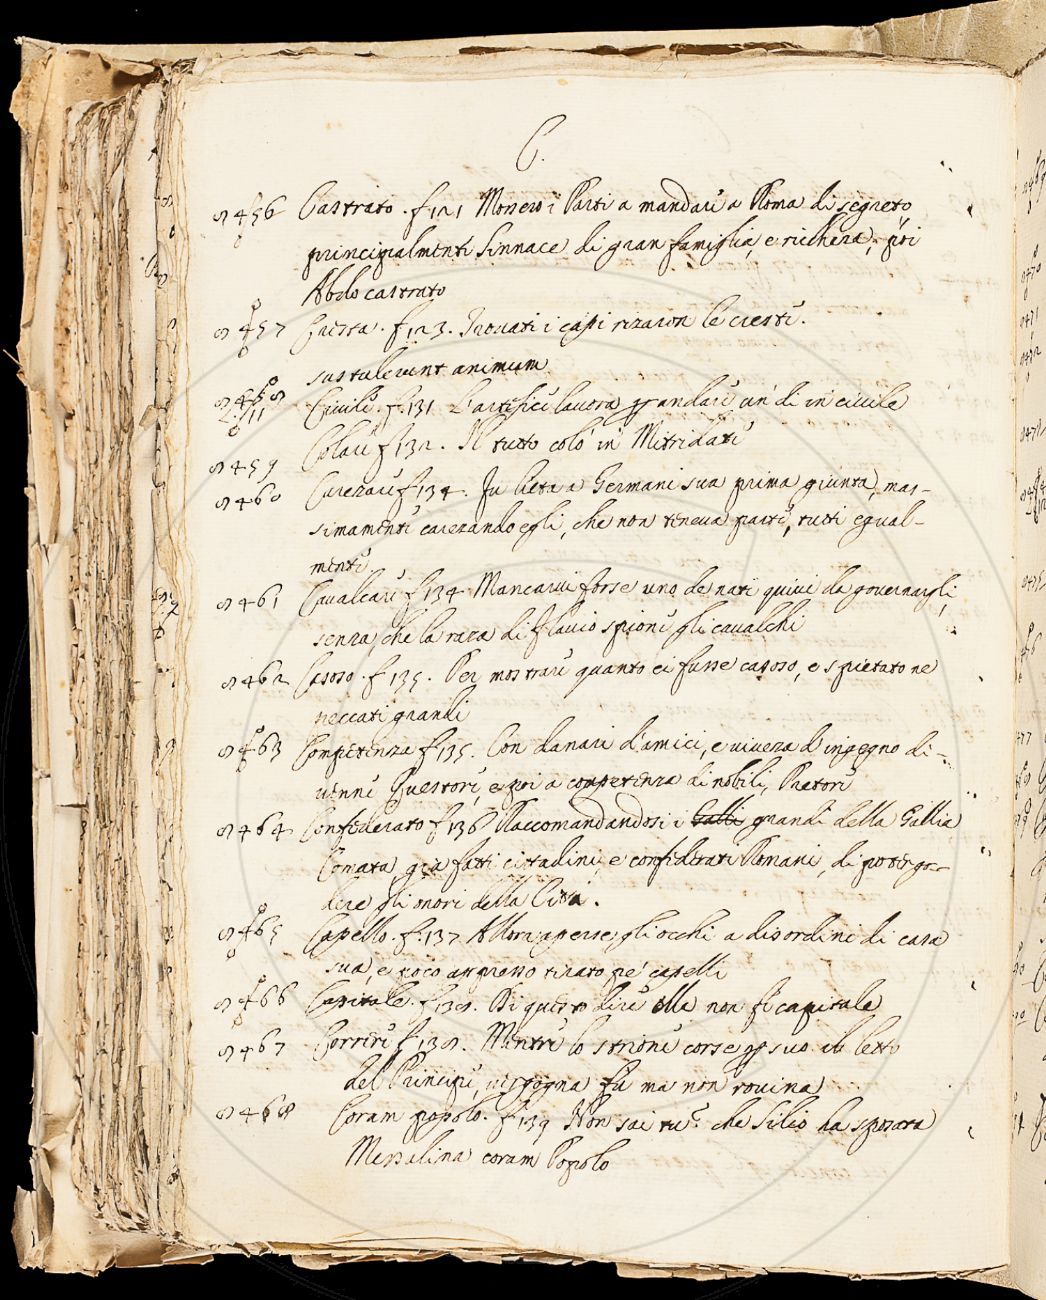 C.
456 Castrato. f. 121 Mossero i Parti a mandare a Roma di segreto
principalmente Sinnace di gran famiglia, e ricchezza, poi
Abdo castrato
457 Cresta. f. 123. Trovati i capi rizaron le creste.
sustulerunt animum
458 Civile. f. 131 L'artefice lavora per andare un dì in civile
459 Colare f. 132. Il tutto colò in Mitridate
460 Carezare f. 134. Fu lieta a Germani sua prima giunta, mas-
simamente carezando egli, che non teneva parti, tutti egual-
mente.
461 Cavalcare f. 134 Mancarvi forse uno de nati quivi da governargli,
senza, che la raza di Flavio spione gli cavalchi
462 Casoso. f. 135. Per mostrare quanto ei fusse casoso, e spietato ne
peccati grandi
463 Conpetenza f. 135. Con danari d'amici, e viveza d'ingegno di-
venne Questore, e poi a conpetenza di nobili, Pretore
464 Confederato f. 136 Raccomandandosi i Galli grandi della Gallia
Comata, già fatti cittadini, e confederati Romani, di poter go-
dere gli onori della Città.
465 Capello. f. 137 Allora aperse gli occhi a disordini di casa
sua, e poco appresso tirato pe' capelli
466 Capitale. f. 138. Di questo dire ella non fè capitale
467 Correre f. 138. Mentre lo strione corse per suo il letto
del Principe, vergogna fu ma non rovina
468 Coram popolo. f. 139 Non sai tu? che Silio ha sposata
Messalina coram Popolo